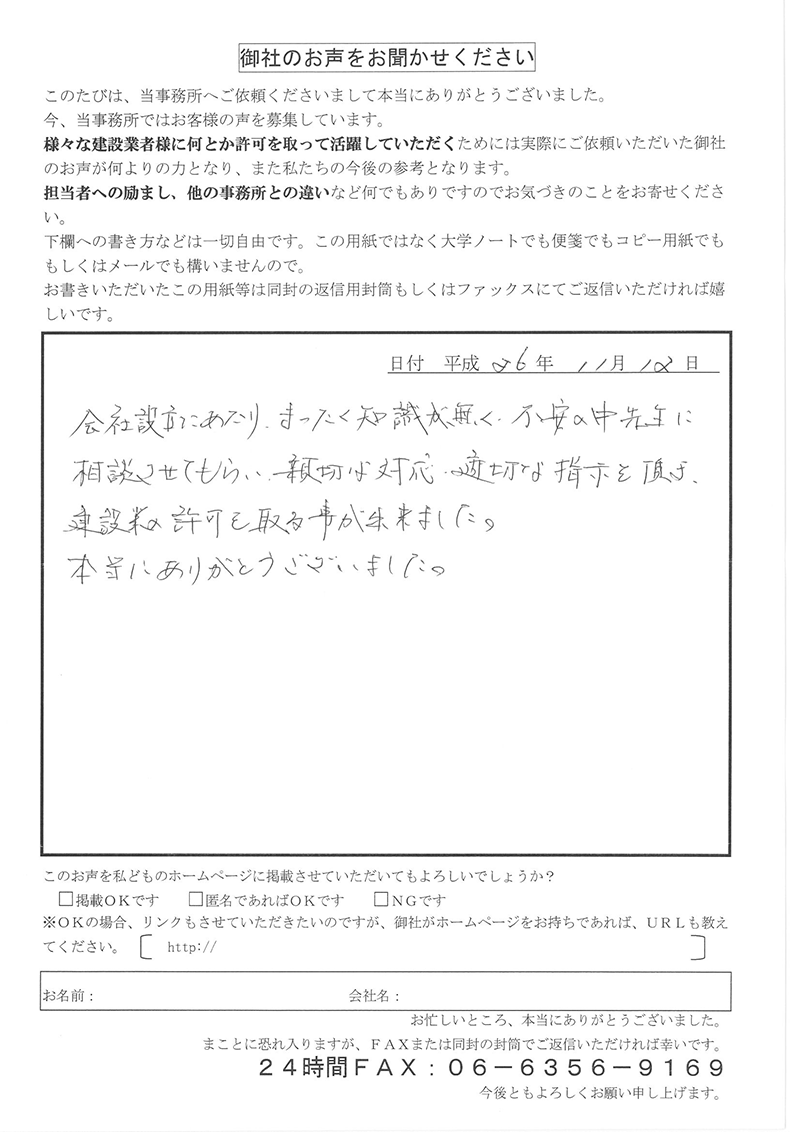 御社のお声をお聞かせください
このたびは、当事務所へご依頼くださいまして本当にありがとうございました。
今、当事務所ではお客様の声を募集しています。
様々な建設業者様に何とか許可を取って活躍していただくためには実際にご依頼いただいた御社
のお声が何よりの力となり、また私たちの今後の参考となります。
担当者への励まし、他の事務所との違いなど何でもありですのでお気づきのことをお寄せくださ
い。
下欄への書き方などは一切自由です。この用紙ではなく大学ノートでも便箋でもコピー用紙でも
もしくはメールでも構いませんので。
お書きいただいたこの用紙等は同封の返信用封筒もしくはファックスにてご返信いただければ嬉
しいです。
日付 平成 26 年 11 月 12 日
会社設立にあたり、まったく知識が無く、不安の中先生に
相談させてもらい、親切な対応、適切な指示を頂き、
建設業の許可を取る事が出来ました。
本当にありがとうございました。
このお声を私どものホームページに掲載させていただいてもよろしいでしょうか？
□掲載ＯＫです □匿名であればＯＫです □ＮＧです
※ＯＫの場合、リンクもさせていただきたいのですが、御社がホームページをお持ちであれば、ＵＲＬも教え
てください。［ http:// ］
お名前： 会社名：
お忙しいところ、本当にありがとうございました。
まことに恐れ入りますが、ＦＡＸまたは同封の封筒でご返信いただければ幸いです。
２４時間ＦＡＸ：０６－６３５６－９１６９
今後ともよろしくお願い申し上げます。